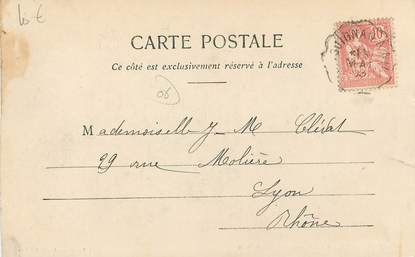 10 €
CARTE POSTALE
Ce côté est exclusivement réservé à l'adresse
06
Mademoiselle J. M Clévat
29 rue Molière
Lyon
Rhône
10